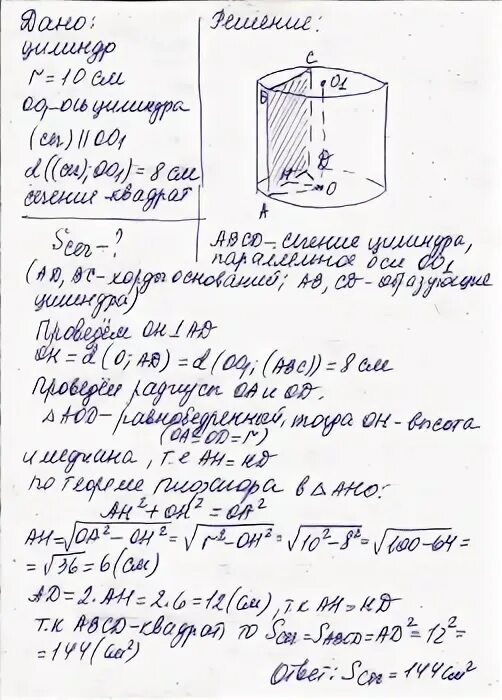 Дано:
цилиндр
r = 10 см
OO₁-ось цилиндра
(сеч) || OO1
d((сеч); OO1) = 8 см
сечение-квадрат
Sсеч - ?
Решение:
C
B
O1
H
D
O
A
ABCD-сечение цилиндра,
параллельное оси OO1
(AD, BC-хорды оснований; AB, CD-образующие
цилиндра)
Проведём OH⊥AD
OH = d(O; AD) = d(OO₁; (ABC)) = 8 см
Проведём радиусы OA и OD.
△AOD-равнобедренный, тогда OH-высота
(OA=OD=r)
и медиана, т.е AH=HD
по теореме Пифагора в △AHO:
AH² + OH² = OA²
AH=√OA²-OH² = √r²-OH² = √10²-8² = √100-64 =
= √36 = 6 (см)
AD = 2·AH = 2·6 = 12 (см), т.к AH=HD
т.к ABCD-квадрат то Sсеч=SABCD=AD²=12²=
= 144 (см²)
Ответ: Sсеч = 144 см²